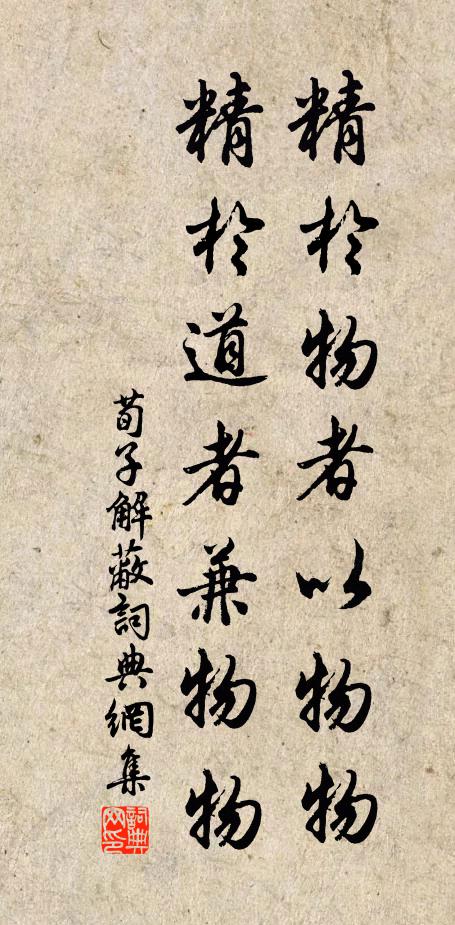 精於物者以物物
精於道者兼物物
荀子解蔽詞典網集
詞典网印